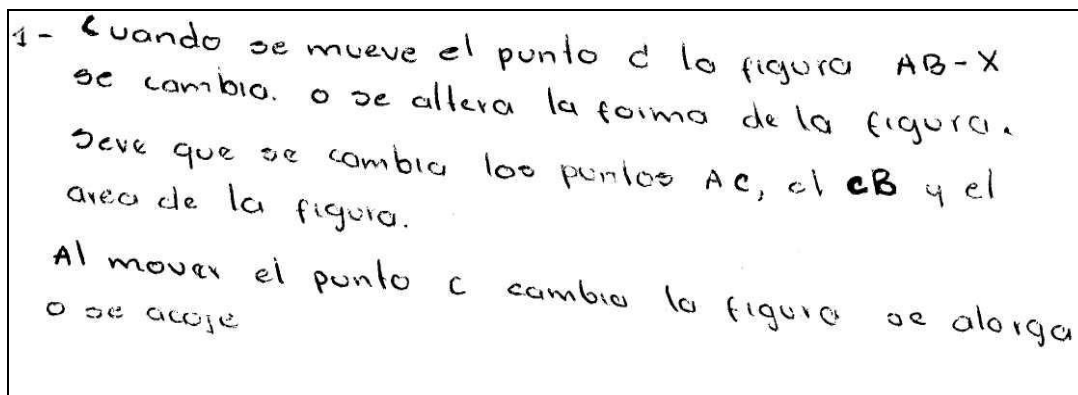 1- Cuando se mueve el punto c la figura AB-X
se cambia. o se altera la forma de la figura.
Seve que se cambia los puntos AC, el CB y el
area de la figura.
Al mover el punto c cambia la figura se alarga
o se acoje